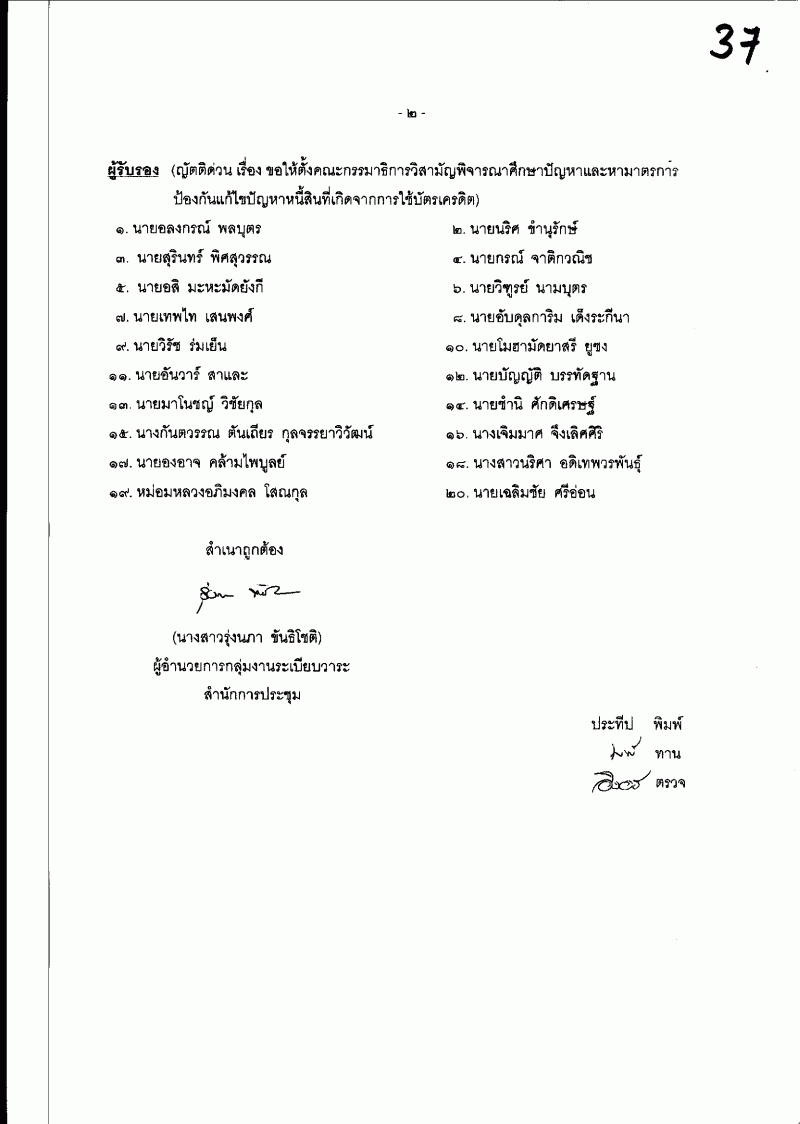 37
- ๒ -
ผู้รับรอง (ญัตติด่วน เรื่อง ขอให้ตั้งคณะกรรมาธิการวิสามัญพิจารณาศึกษาปัญหาและหามาตรการ
ป้องกันแก้ไขปัญหาหนี้สินที่เกิดจากการใช้บัตรเครดิต)
๑. นายอลงกรณ์ พลบุตร ๒. นายนริศ ขำนุรักษ์
๓. นายสุรินทร์ พิศสุวรรณ ๔. นายกรณ์ จาติกวณิช
๕. นายอสิ มะหะมัดยังกี ๖. นายวิฑูรย์ นามบุตร
๗. นายเทพไท เสนพงศ์ ๘. นายอับดุลการิม เด็งระกีนา
๙. นายวิรัช ร่มเย็น ๑๐. นายโมฮามัดยาสรี ยูซง
๑๑. นายอันวาร์ สาและ ๑๒. นายบัญญัติ บรรทัดฐาน
๑๓. นายมาโนชญ์ วิชัยกุล ๑๔. นายชำนิ ศักดิเศรษฐ์
๑๕. นางกันตวรรณ ตันเถียร กุลจรรยาวิวัฒน์ ๑๖. นางเจิมมาศ จึงเลิศศิริ
๑๗. นายองอาจ คล้ามไพบูลย์ ๑๘. นางสาวนริศา อดิเทพวรพันธุ์
๑๙. หม่อมหลวงอภิมงคล โสณกุล ๒๐. นายเฉลิมชัย ศรีอ่อน
สำเนาถูกต้อง
(นางสาวรุ่งนภา ขันธิโชติ)
ผู้อำนวยการกลุ่มงานระเบียบวาระ
สำนักการประชุม
ประทีป พิมพ์
ทาน
ตรวจ